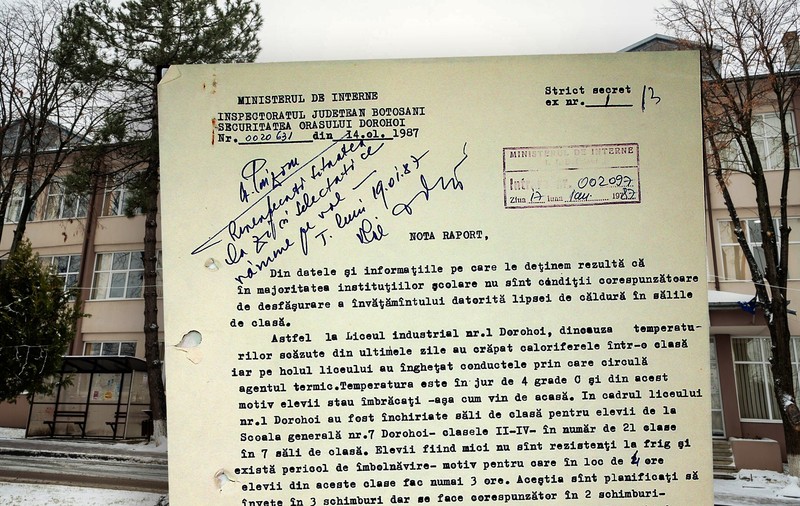 MINISTERUL DE INTERNE
Strict secret
ex nr. 1
INSPECTORATUL JUDETEAN BOTOSANI
SECURITATEA ORASULUI DOROHOI
Nr. 0020631 din 14.01. 1987
MINISTERUL DE INTERNE
nr. 002097
Ziua 17 luna Ian. 1987
T. luni 19.01.87
NOTA RAPORT,
Din datele şi informaţiile pe care le deţinem rezultă că
în majoritatea instituţiilor şcolare nu sînt condiţii corespunzătoare
de desfăşurare a învăţămîntului datorită lipsei de căldură în sălile
de clasă.
Astfel la Liceul industrial nr.1 Dorohoi, dincauza temperatu-
rilor scăzute din ultimele zile au crăpat caloriferele într-o clasă
iar pe holul liceului au îngheţat conductele prin care circulă
agentul termic.Temperatura este în jur de 4 grade C şi din acest
motiv elevii stau îmbrăcaţi -aşa cum vin de acasă. In cadrul liceului
nr.1 Dorohoi au fost închiriate săli de clasă pentru elevii de la
Scoala generală nr.7 Dorohoi- clasele II-IV- în număr de 21 clase
în 7 săli de clasă. Elevii fiind mici nu sînt rezistenţi la frig şi
există pericol de îmbolnăvire- motiv pentru care în loc de 4 ore
elevii din aceste clase fac numai 3 ore. Aceştia sînt planificaţi să
înveţe în 3 schimburi dar se face corespunzător în 2 schimburi-